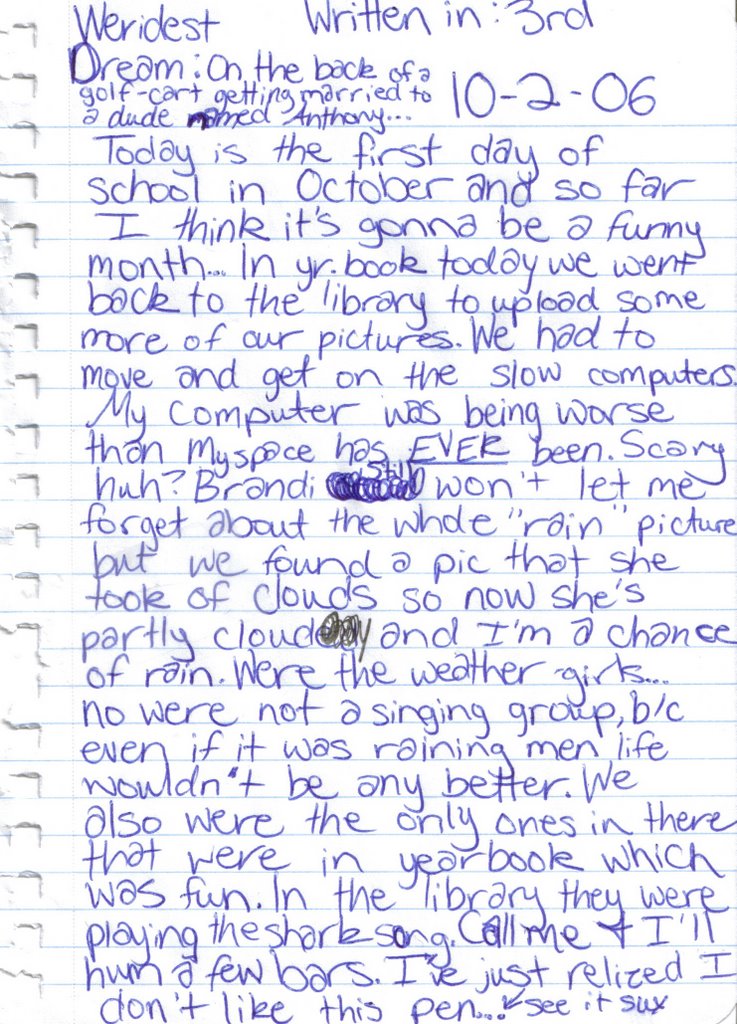 Weridest Written in: 3rd
Dream: On the back of a
golf-cart getting married to
a dude named Anthony...
10-2-06
Today is the first day of
school in October and so far
I think it's gonna be a funny
month... In yr.book today we went
back to the library to upload some
more of our pictures. We had to
move and get on the slow computers.
My computer was being worse
than Myspace has EVER been. Scary
huh? Brandi still won't let me
forget about the whole "rain" picture
but we found a pic that she
took of clouds so now she's
partly cloudy and I'm a chance
of rain. Were the weather girls...
no were not a singing group, b/c
even if it was raining men life
wouldn't be any better. We
also were the only ones in there
that were in yearbook which
was fun. In the library they were
playing the shark song. Call me + I'll
hum a few bars. I've just relized I
don't like this pen... see it sux